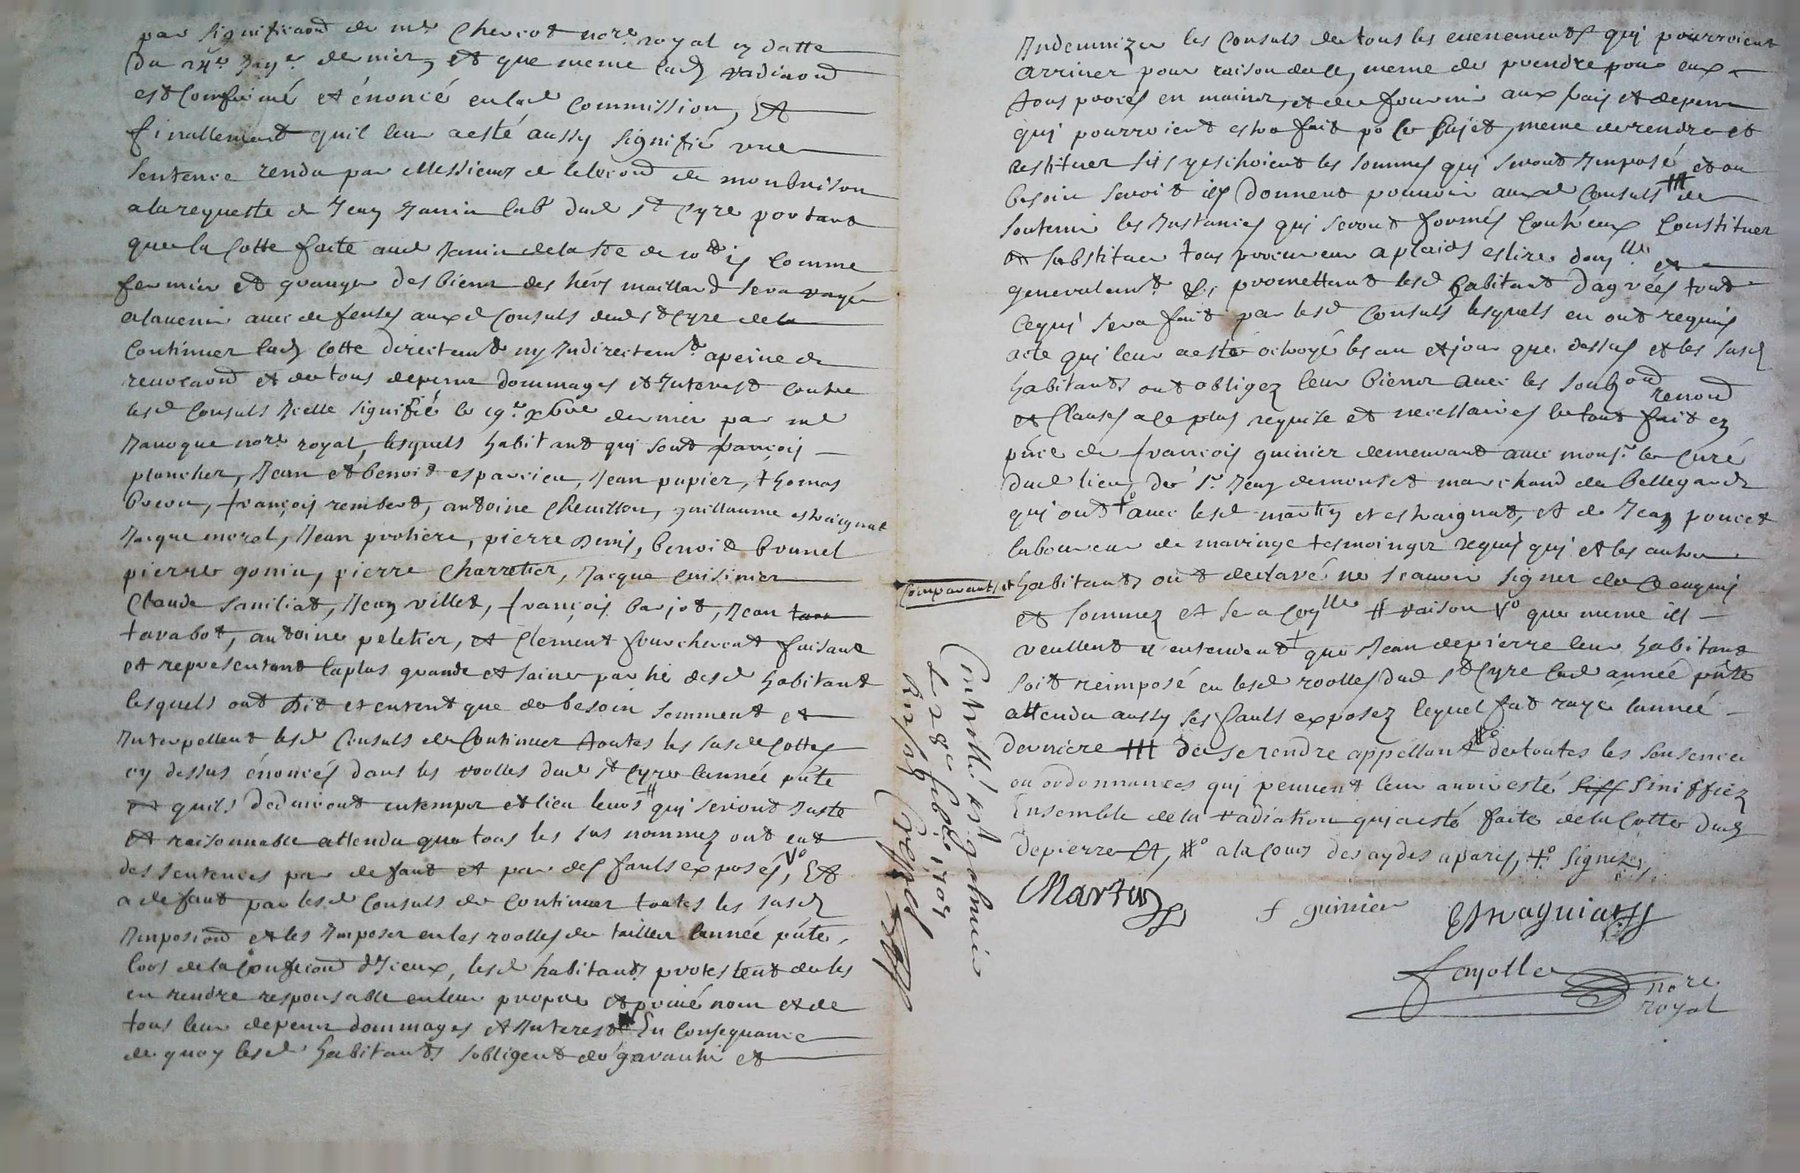 par signification de me Chevrot nore royal en datte
du 24e Janvr dernier, et que meme lade radiaon
est confirmé et énoncé en lad commission, Et
finallement quil leur a esté aussy signifié une
sentence rendu par Messieurs de lelection de montbrison
a la requeste de Jean Janin lab dud st Cyre portant
que la Cotte faite aud Janin de la sõe de comme
fermier et granger des biens des hers maillard sera rayé
a lavenir avec defenses auxd Consuls dud st Cyre de la
Continuer lad Cotte directemt ny Indirectemt a peine de
revocaon et de tous depens dommages et Interest contre
lesd Consuls Icelle signifié le 19e xbre dernier par me
Janoque nore royal, lesquels habitant qui sont françois
plancher, Jean et benoit esparcieu, Jean papier, thomas
françois rembert, antoine Chevillon, guillaume estraignat
Jacque morel, Jean protiere, pierre Denis, benoit brunel
pierre gonin, pierre Charretier, Jacque Cuisinier
Claude Saniliat, Jean villet, françois barjot, Jean
tarabot, antoine peletier, et Clement fourcherent faisant
et representant la plus grande et saine partie desd habitant
lesquels ont dit et entent que de besoin somment et
Interpellent lesd Consuls de Continuer toutes les susd Cottes
cy dessus énoncés dans les roolles dud st Cyre lannée pñte
et quils deduiront en temps et lieu leurs # qui seront Juste
et raisonnable attendu que tous les sus nommez ont eut
des sentences par defaut et par des faults exposés, V° Et
a defaut par lesd Consuls de Continuer toutes les susd
Imposiõn et les Imposer en les roolles de tailles lannée pñte,
lors de la Confection diceux, lesd habitants protestent de les
en rendre responsable en leur propre et privé nom et de
tous leur depens dommages et Interest En Consequance
de quoy lesd habitants sobligent de garantir et
Controllé a st galmier
le 28e febvrier 1705
Indemnizer les Consuls de tous les evenements qui pourroient
arriver pour raison de ce, meme de prendre pour eux
tous procès en mains, et de fournir aux frais et depens
qui pourroient estre fait po ce sujet, meme de rendre et
restituer sils y eschoient les sommes qui seront Imposé et au
besoin seroit ils donnent pouvoir auxd Consuls de
soutenir les Instances qui seront formés Contreeux Constituer
et substituer tous procureur a plaids eslire domlle et
generalemt & promettant lesd habitant dagrées tout
ce qui sera fait par lesd Consuls lesquels en ont requis
acte qui leur a esté octroyé les an et jour que dessus et les susd
habitants ont obligez leur biens avec les soubzons renond
et Clauses a ce plus requise et necessaires le tout fait en
pñce de françois guinier demeurant avec monsr le Curé
dud lieu, de sr Jean demouset marchand de bellegarde
qui ont +° avec lesd martin et estraignat, et de Jean poncet
laboureur de maringe tesmoings requis qui et les autres
Comparants et habitants ont declaré ne scavoir signer de ce enquis
et sommez et sera Conlle # raison V° que meme ils
veullent et entendent que Jean depierre leur habitant
soit reimposé en lesd roolles dud st Cyre lad année pñte
attendu aussy ses faults exposez lequel fut raye lannée
derniere ### de se rendre appellant #° de toutes les sentences
ou ordonnances qui peuvent leur avoir esté siniffiez
Ensemble de la radiation qui a esté faite de la Cotte dud
depierre Et, #° a la Cour des aydes a paris, +° signez.
Martin
f guinier
Estraigniat
fayolle
nore
royal